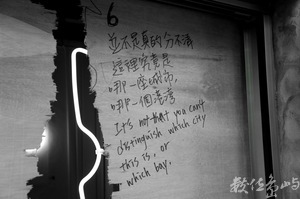 6
並不是真的分不清
這裡究竟是
哪一座城市,
哪一個港灣
It's not that you can't
distinguish which city
this is, or
which bay.
數位島嶼